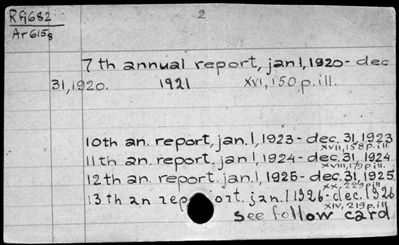 RG682
2
Ar615g
7th annual report, jan 1, 1920 - dec
31, 1920. 1921 xvi, 150 p. ill.
10th an. report, jan. 1, 1923 - dec. 31, 1923
xvii, 158 p. ill.
11th an. report. jan. 1, 1924 - dec. 31, 1924
xviii, 179 p. ill.
12th an. report. jan. 1, 1925 - dec. 31, 1925
xx, 229 p ill
13th an rep ort. jan. 1 1926 - dec. 1926
xiv, 219 p. ill
See follow card